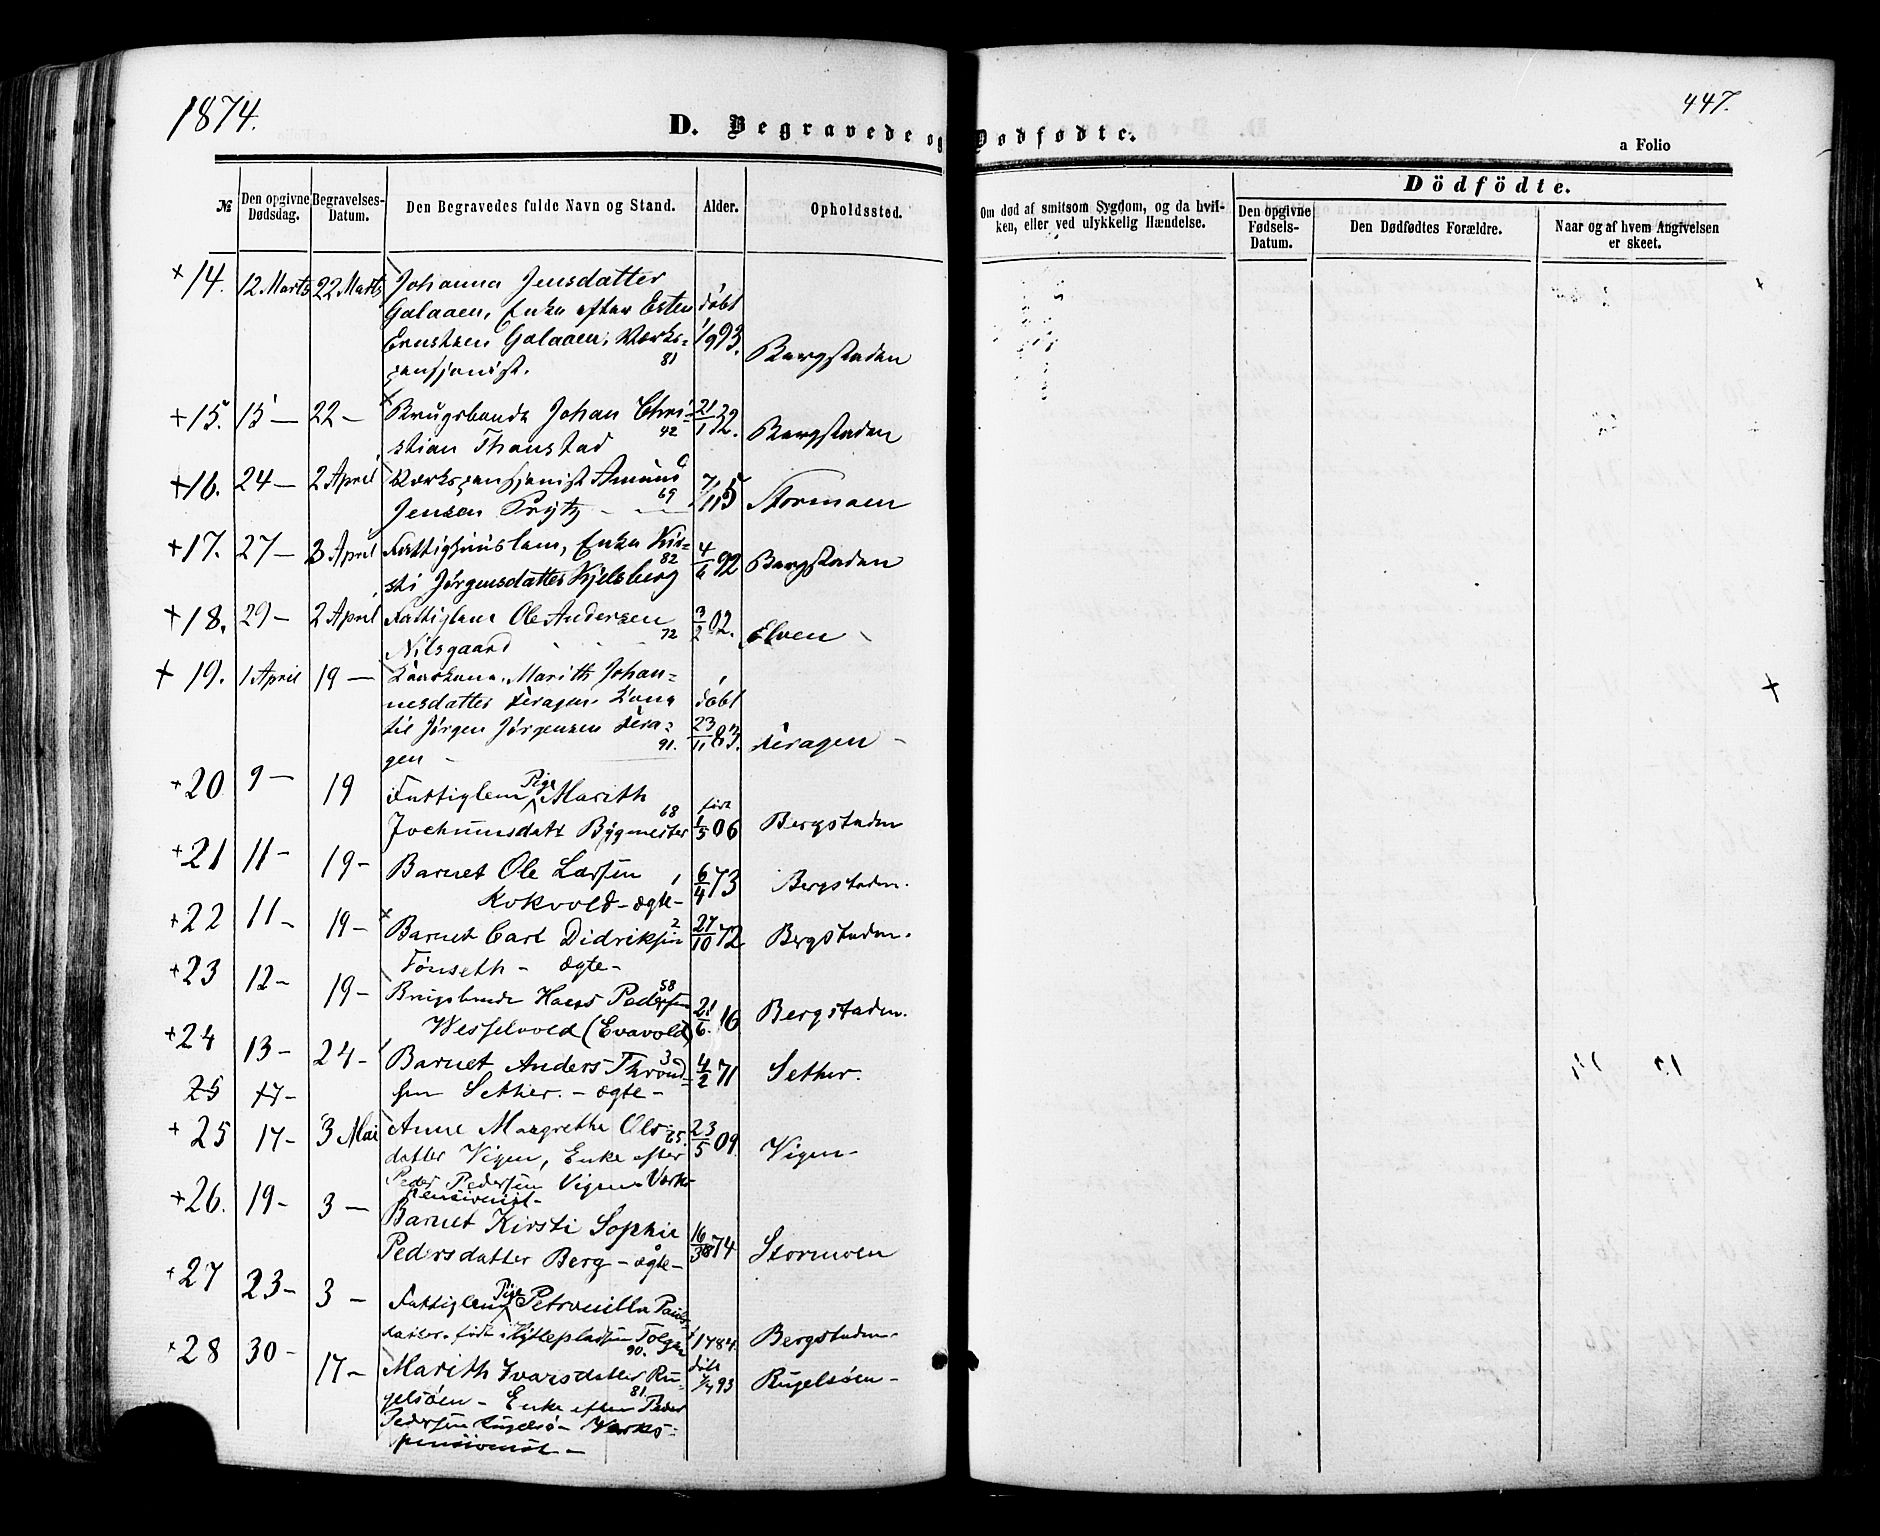 1874.
447.
D. Begravede og Dødfødte.
a Folio
№
Den opgivne Dødsdag.
Begravelses-Datum.
Den Begravedes fulde Navn og Stand.
Alder.
Opholdssted.
Om død af smitsom Sygdom, og da hvil-
ken, eller ved ulykkelig Hændelse.
Dödfödte.
Den opgivne Fødsels-Datum.
Den Dødfødtes Forældre.
Naar og af hvem Angivelsen er skeet.
+ 14. 12 Marts 22 Marts Johanna Jensdatter
Galaaen, Enke efter Esten døbt
Erntsen Galaaen, Værks- 1/1 93.
pensjonist. 81 Bergstaden
+ 15. 15 — 22 — Brugsbonde Johan Chri- 21/1 32.
stian Thonstad 42 Bergstaden
+ 16. 24 — 2 April Værkspensjonist Amund
Jensen Prytz — 69 7/11 5 Stormoen
+ 17. 27 — 3 April Fattighuuslem, Enke Kir-
sti Jørgensdatter Kjelsberg 82 4/6 92 Bergstaden
+ 18. 29 — 2 April Fattiglem Ole Andersen 3/2 02.
Nilsgaard 72 Elven —
+ 19. 1 April 19 — Konekone Marith Johan-
nesdatter Feragen Kone døbt
til Jørgen Jørgensen Fera- 23/11 83.
gen — 91. Feragen —
+ 20 9 — 19 Fattiglem Pige Marith født
Jochumsdatr Bygmester 68 1/5 06 Bergstaden
+ 21 11 — 19 — Barnet Ole Larsen 1 6/4 73 Bergstaden.
Kokvold — ægte —
+ 22 11 — 19 — Barnet Carl Didriksen 2 27/10 72 Bergstaden.
Tønseth — ægte —
+ 23 12 — 19 — Brugsbonde Hans Pedersen 58 21/6. 16 Bergstaden.
Wesselvold (Evavold)
+ 24 13 — 24 — Barnet Anders Thrond- 3 4/2 71 Sether.
sen Sether. — ægte —
25 17 —
+ 25 17 — 3 Mai Anne Margrethe Ols- 65. 23/5 09. Vigen —
datter Vigen, Enke efter
Peder Pedersen Vigen Værks-
pensionist —
+ 26. 19 — 3 — Barnet Kirsti Sophie 16/3 74 Stormoen
Pedersdatter Berg — ægte —
+ 27 23 — 3 — Fattiglem Pige Petronilla Pauls-
datter. født i Hytteplassen Tolgen 90. 1784. Bergstaden —
+ 28 30 — 17 — Marith Ivarsdatter Ru- døbt Rugelsøen —
gelsøen — Enke efter Peder 81. 1/4 93
Pedersen Rugelsø — Værks-
pensionist —